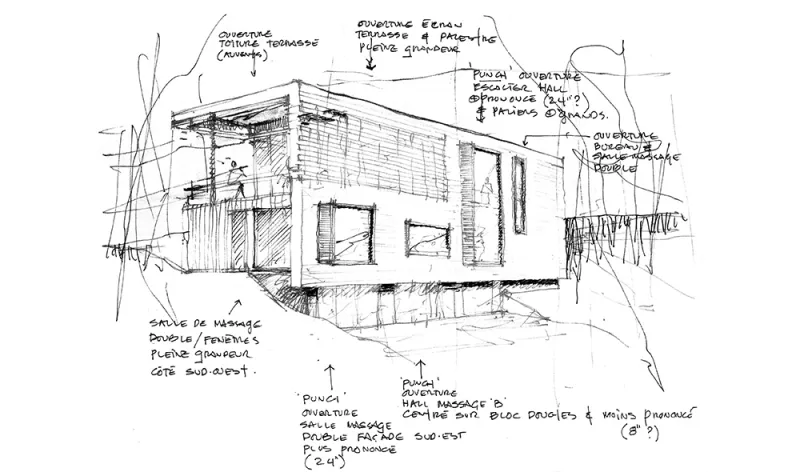 OUVERTURE
TOITURE TERRASSE
(AUVENTS)
OUVERTURE ÉCRAN
TERRASSE & PALESTRE
PLEINE GRANDEUR
'PUNCH' OUVERTURE
ESCALIER HALL
⊕PRONONCÉ (24"?
& PALIERS ⊕GRANDS.
OUVERTURE
BUREAU &
SALLE MASSAGE
DOUBLE
SALLE DE MASSAGE
DOUBLE/FENÊTRES
PLEINE GRANDEUR
CÔTÉ SUD-OUEST.
'PUNCH'
OUVERTURE
SALLE MASSAGE
DOUBLE FAÇADE SUD-EST
PLUS PRONONCÉ
(24")
'PUNCH'
OUVERTURE
HALL MASSAGE 'B'
CENTRÉ SUR BLOC DOUCHES & MOINS PRONONCÉ
(8"?)